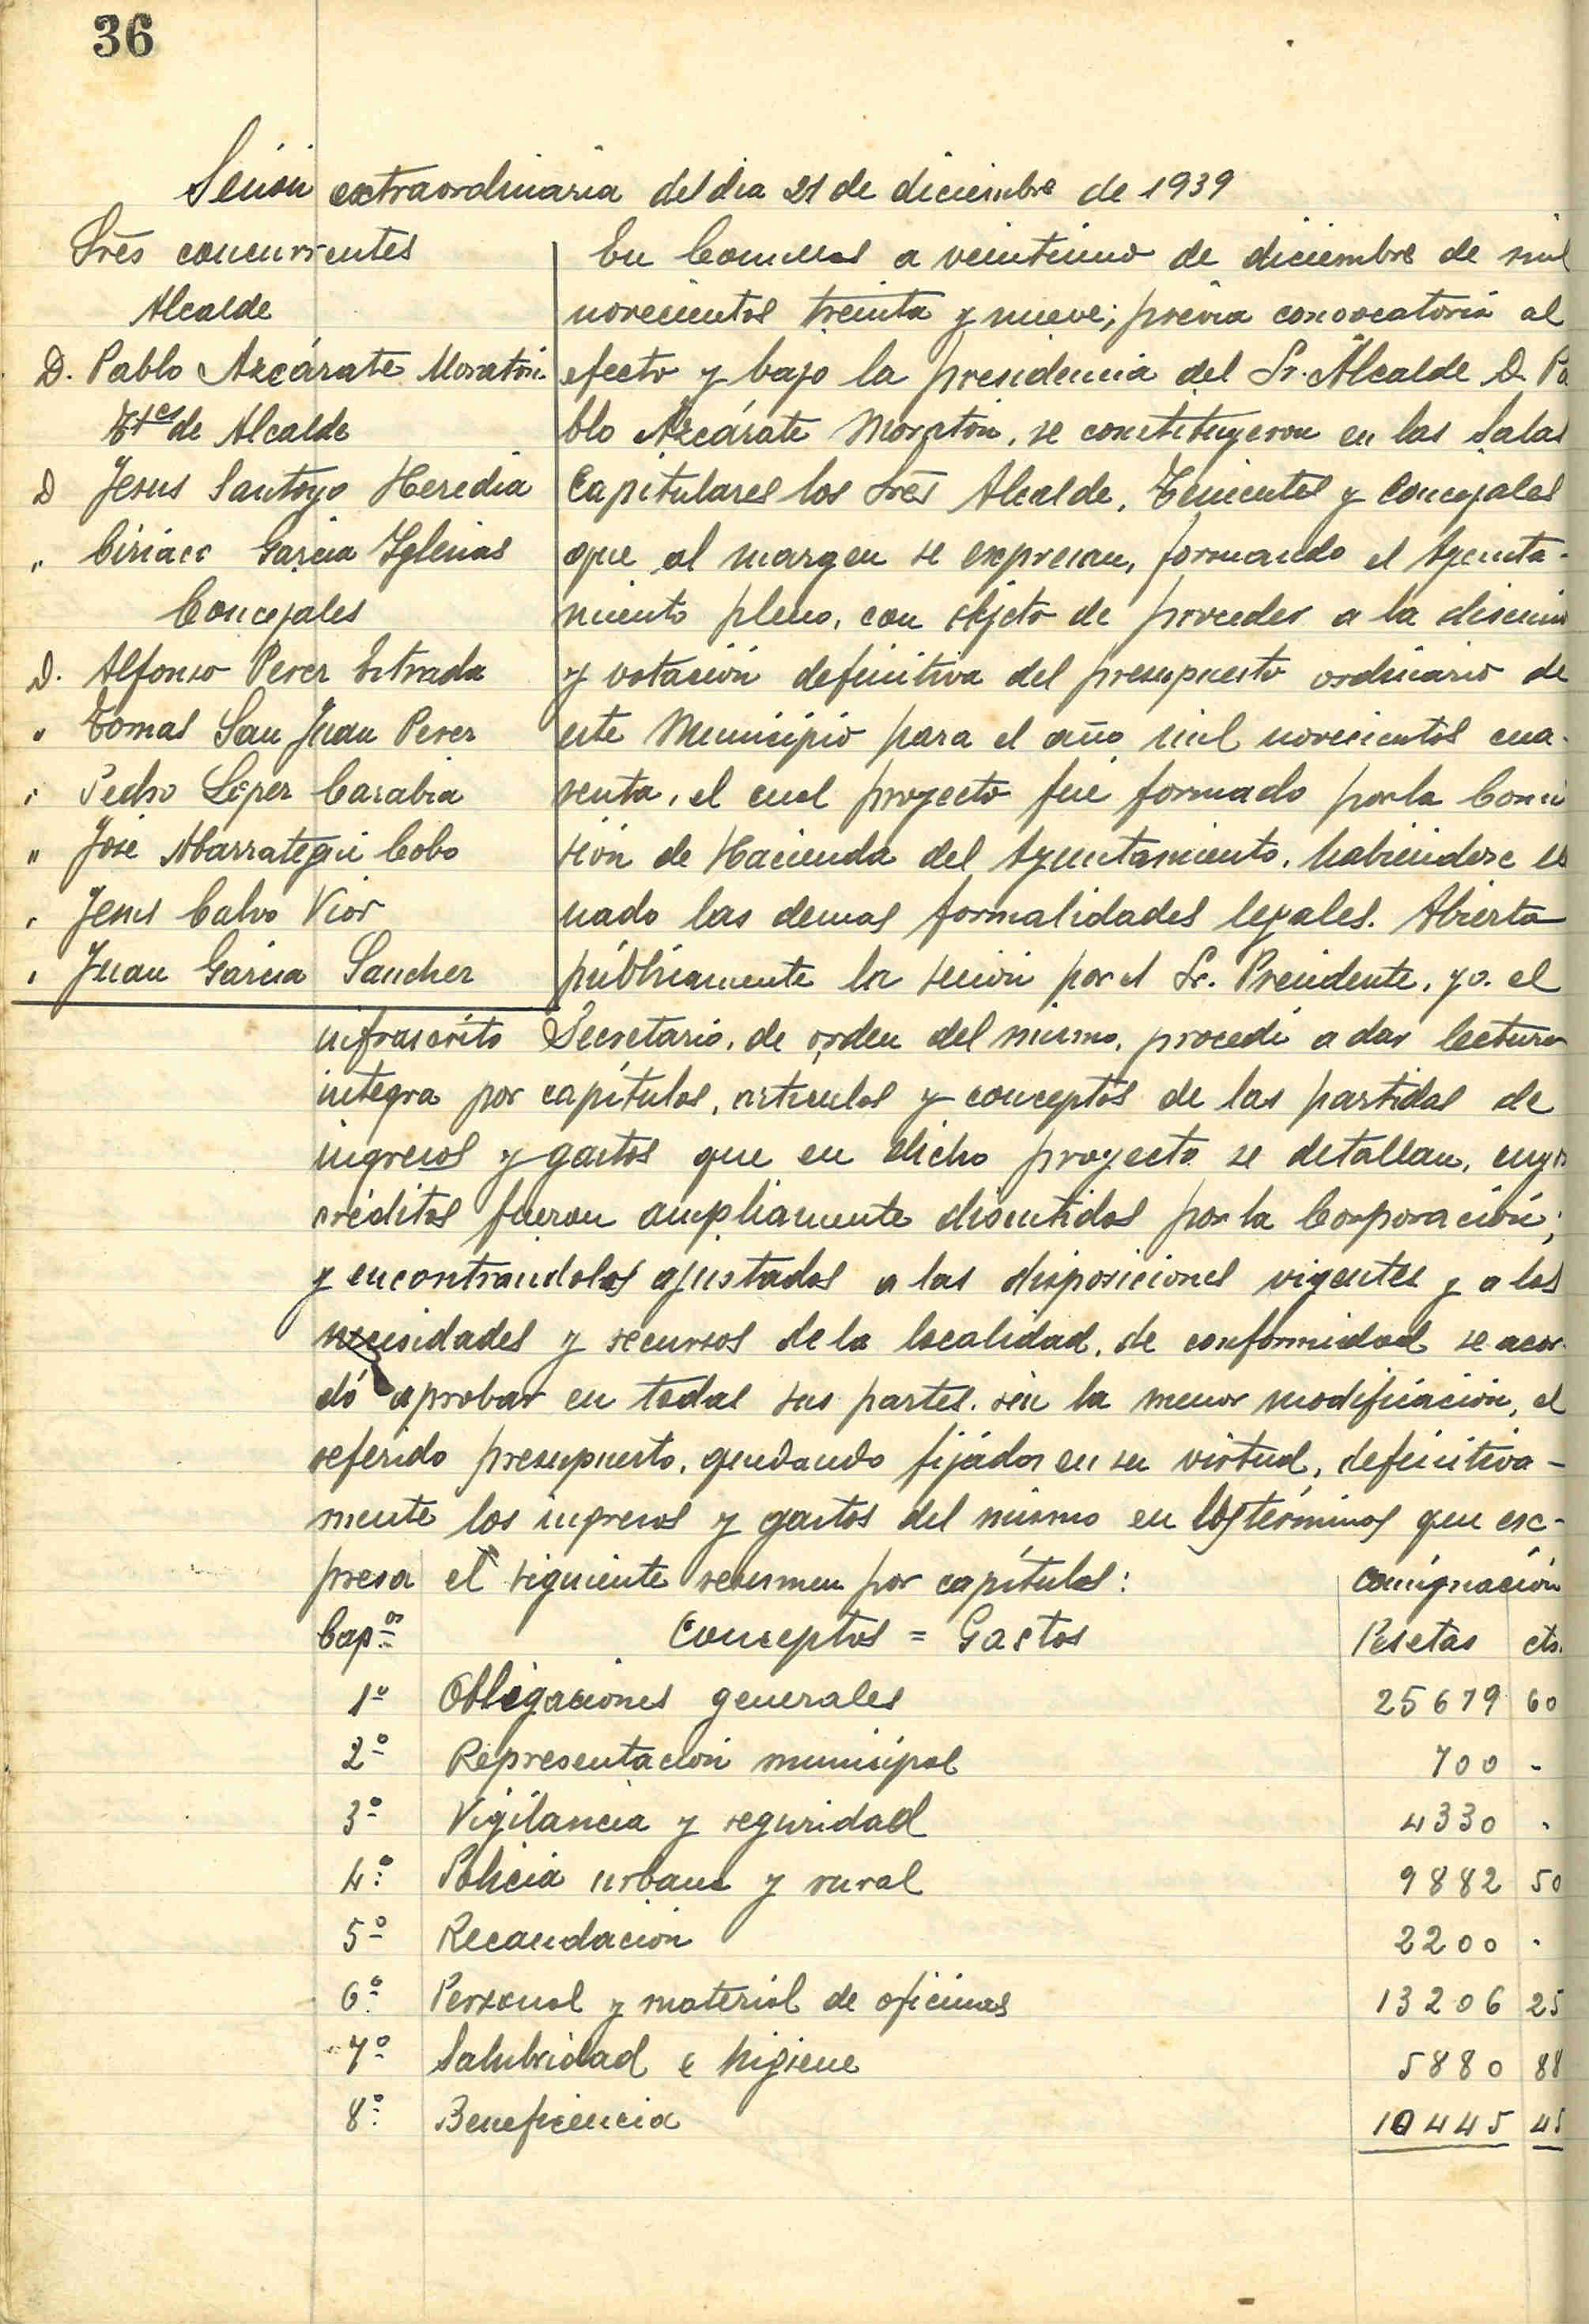 36
Sesión extraordinaria del dia 21 de diciembre de 1939
Sres concurrentes
Alcalde
D. Pablo Azcárate Moratón
Ttes de Alcalde
D Jesus Santoyo Heredia
" Ciriaco Garcia Yglesias
Concejales
D. Alfonso Perez Estrada
" Tomas San Juan Perez
" Pedro López Carabia
" José Abarrategui Cobo
" Jesus Calvo Vior
" Juan Garcia Sanchez
En Comillas a veintiuno de diciembre de mil
novecientos treinta y nueve; prévia convocatoria al
efecto y bajo la presidencia del Sr. Alcalde D. Pa
blo Azcárate Moratón, se constituyeron en las Salas
Capitulares los Sres Alcalde, Tenientes y Concejales
que al margen se expresan, formando el Ayunta-
miento pleno, con objeto de proceder a la discusion
y votación definitiva del presupuesto ordinario de
este Municipio para el año mil novecientos cua-
renta, el cual proyecto fué formado por la Comi
sión de Hacienda del Ayuntamiento, habiendose lle
nado las demas formalidades legales. Abierta
públicamente la sesión por el Sr. Presidente, yo. el
infrascrito Secretario, de orden del mismo, procedi a dar lectura
integra por capítulos, articulos y conceptos de las partidas de
ingresos y gastos que en dicho proyecto se detallan, cuyos
créditos fueron ampliamente discutidos por la Corporación;
y encontrandolos ajustados a las disposiciones vigentes y a las
necesidades y recursos de la localidad, de conformidad se acor-
dó aprobar en todas sus partes, sin la menor modificación, el
referido presupuesto, quedando fijados en su virtud, definitiva-
mente los ingresos y gastos del mismo en los términos que esc-
presa el siguiente resumen por capítulos: consignación
Cap.os Conceptos = Gastos Pesetas cts.
1º Obligaciones generales 25679 60
2º Representación municipal 700 -
3º Vigilancia y seguridad 4330 .
4º Policia urbana y rural 9882 50
5º Recaudacion 2200 .
6º Personal y material de oficinas 13206 25
7º Salubridad e higiene 5880 88
8º Beneficencia 10445 45